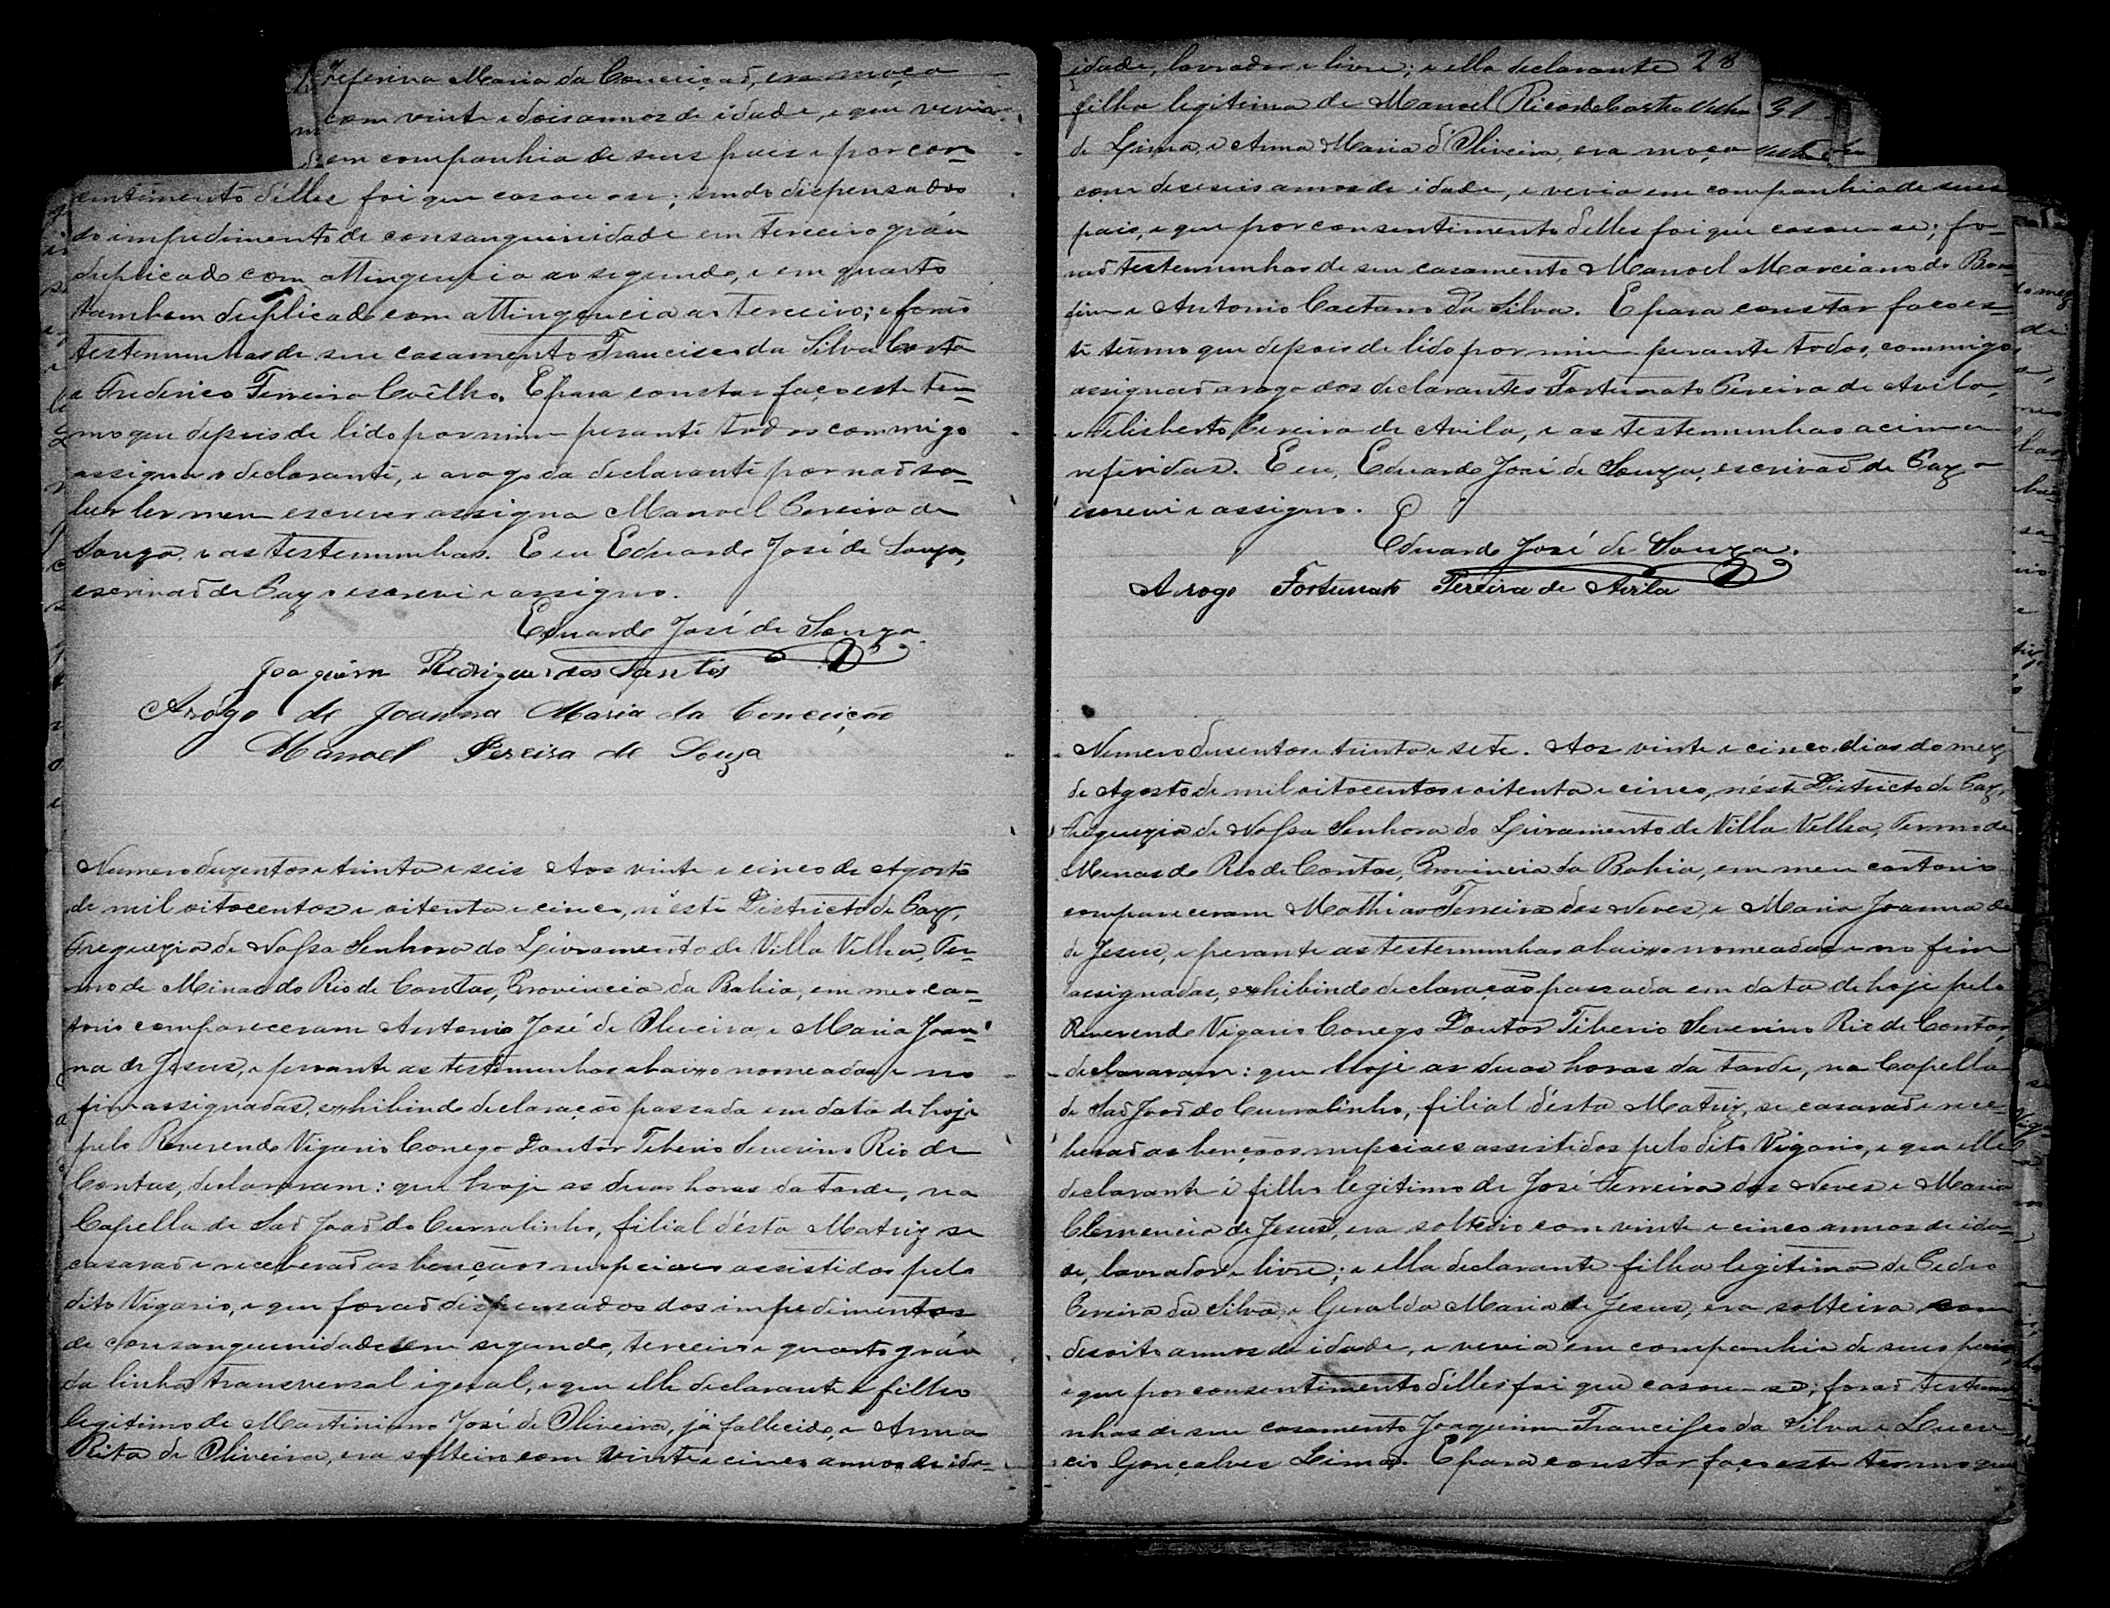 Zeferina Maria da Conceiçaõ, era moça
com vinte e dois annos de idade, e que vevia
em companhia de seus pais e por con-
sentimento d'elles foi que casou-se; sendo dispensados
do impedimento de consanguinidade em terceiro gráu
duplicado com attingencia ao segundo, e em quarto
tambem duplicado com attingencia ao terceiro; e foraõ
testemunhas de seu casamento Francisco da Silva Costa
e Frederico Ferreira Coêlho. E para constar faço este ter-
mo que depois de lido por mim perante todos commigo
assigna o declarante, e a rogo da declarante por naõ sa-
ber ler nem escrever assigna Manoel Pereira de
Souza, e as testemunhas. E eu Eduardo José de Souza,
escrivaõ de Paz o escrevi e assigno.
Eduardo José de Souza.
Joaquim Rodrigues dos Santos
Arogo de Joanna Maria da Conceição
Manoel Pereira de Souza
Numero duzentos e trinta e seis Aos vinte e cinco de Agosto
de mil oitocentos e oitenta e cinco, n'este Districto de Paz,
Freguezia de Nossa Senhora do Livramento de Villa Velha, Ter-
mo de Minas do Rio de Contas, Provincia da Bahia, em meo car-
torio compareceram Antonio José de Oliveira e Maria Joan-
na de Jesus, e perante as testemunhas abaixo nomeadas e no
fim assignadas, exhibindo declaração passada em data de hoje
pelo Reverendo Vigario Conego Doutor Tiberio Severino Rio de
Contas, declararam: que hoje as duas horas da tarde, na
Capella de Saõ Joaõ do Curralinho, filial d'ésta Matriz se
casaraõ e receberaõ as bençãos nupciaes assistidos pelo
dito Vigario, e que foraõ dispensados dos impedimentos
de consanguinidade em segundo, terceiro e quarto gráu
da linha transversal igual, e que elle declarante é filho
legitimo de Martiniano José de Oliveira, já fallecido, e Anna
Rita de Oliveira, era solteiro com vinte e cinco annos de ida-
idade, lavrador e livre; e ella declarante 28
filha legitima de Manoel Ricardo Castro
de Lima, e Anna Maria d'Oliveira, era moça
com deseseis annos de idade, e vevia em companhia de seus
pais, e que por consentimento d'elles foi que casou-se; fo-
raõ testemunhas de seu casamento Manoel Marciano do Bom-
fim e Antonio Caetano da Silva. E para constar faço es-
te têrmo que depois de lido por mim perante todos, commigo
assignaõ arogo dos declarantes Fortunato Pereira de Avila,
e Felisberto Pereira de Avila, e as testemunhas acima
referidas. E eu, Eduardo José de Souza, escrivaõ de Paz o
escrevi e assigno.
Eduardo José de Souza.
A rogo Fortunato Pereira de Avila
Numero dusentos e trinta e sete. Aos vinte e cinco dias do mez
de Agosto de mil oitocentos e oitenta e cinco, n'éste Districto de Paz,
Freguezia de Nossa Senhora do Livramento de Villa Velha, Termo de
Minas do Rio de Contas, Provincia da Bahia, em meu cartorio
compareceram Mathias Ferreira das Neves, e Maria Joanna de
de Jesus, e perante as testemunhas abaixo nomeadas e no fim
assignadas, exhibindo declaração passada em data de hoje pelo
Reverendo Vigario Conego Doutor Tiberio Severino Rio de Contas,
declararam: que hoje as duas horas da tarde, na Capella
de Saõ Joaõ do Curralinho, filial d'ésta Matriz, se casaraõ e rece-
beraõ as bençãos nupciaes assistidos pelo dito Vigario, e que elle
declarante é filho legitimo de José Ferreira das Neves e Maria
Clemencia de Jesus, era solteiro com vinte e cinco annos de ida-
de, lavrador e livre; e ella declarante filha legitima de Pedro
Pereira da Silva, e Geralda Maria de Jesus, era solteira com
desoito annos de idade, e vevia em companhia de seus pais,
e que por consentimento d'elles foi que casou-se; foraõ testemu-
nhas de seu casamento Joaquim Francisco da Silva e
Gonçalves Lima. E para constar faço este termo que
31